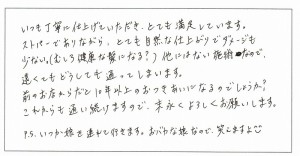 いつも丁寧に仕上げていただき、とても満足しています。
ストパーでありながら、とても自然な仕上がりでダメージも
少ない。(むしろ健康な髪になる?)他にはない技術なので、
遠くてもどうしても通ってしまいます。
前のお店からだと10年以上のおつきあいになるのでしょうか?
これからも通い続けますので、末永くよろしくお願いします。
P.S. いつか娘を連れて行きます。おバカな娘なので、笑えますよ